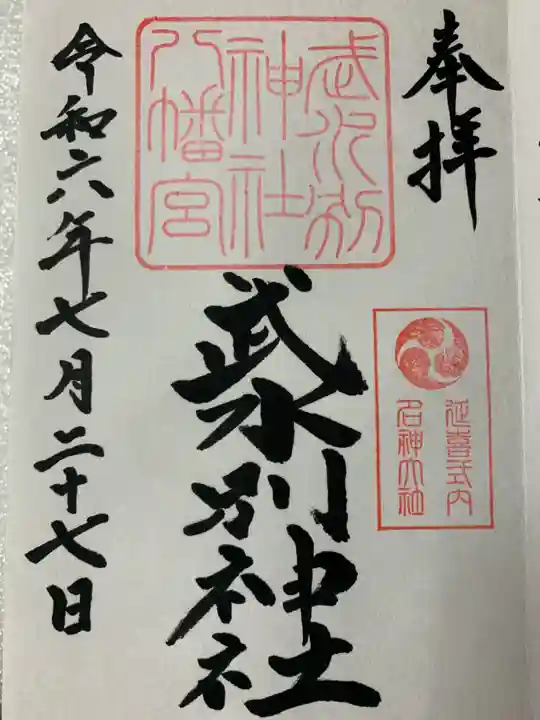 奉拝
延喜式内
名神大社
武水別
神社
八幡宮
武水別神社
令和六年七月二十七日